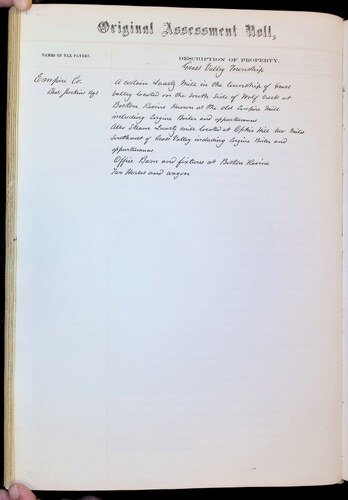 Original Assessment Roll,
NAMES OF TAX PAYERS.
DESCRIPTION OF PROPERTY.
Grass Valley Township
Empire Co.
A certain Quartz Mill in the Township of Grass
Jenkins Agt
Valley located on the South Side of Wolf Creek at
Boston Ravine Known as the Old Empire Mill
including Engine Boiler and appurtenances
Also Steam Quartz mill located at Ophir Hill two Miles
Southeast of Grass Valley including Engine Boiler and
appurtenances
Office Barn and fixtures at Boston Ravine
Two Horses and wagon